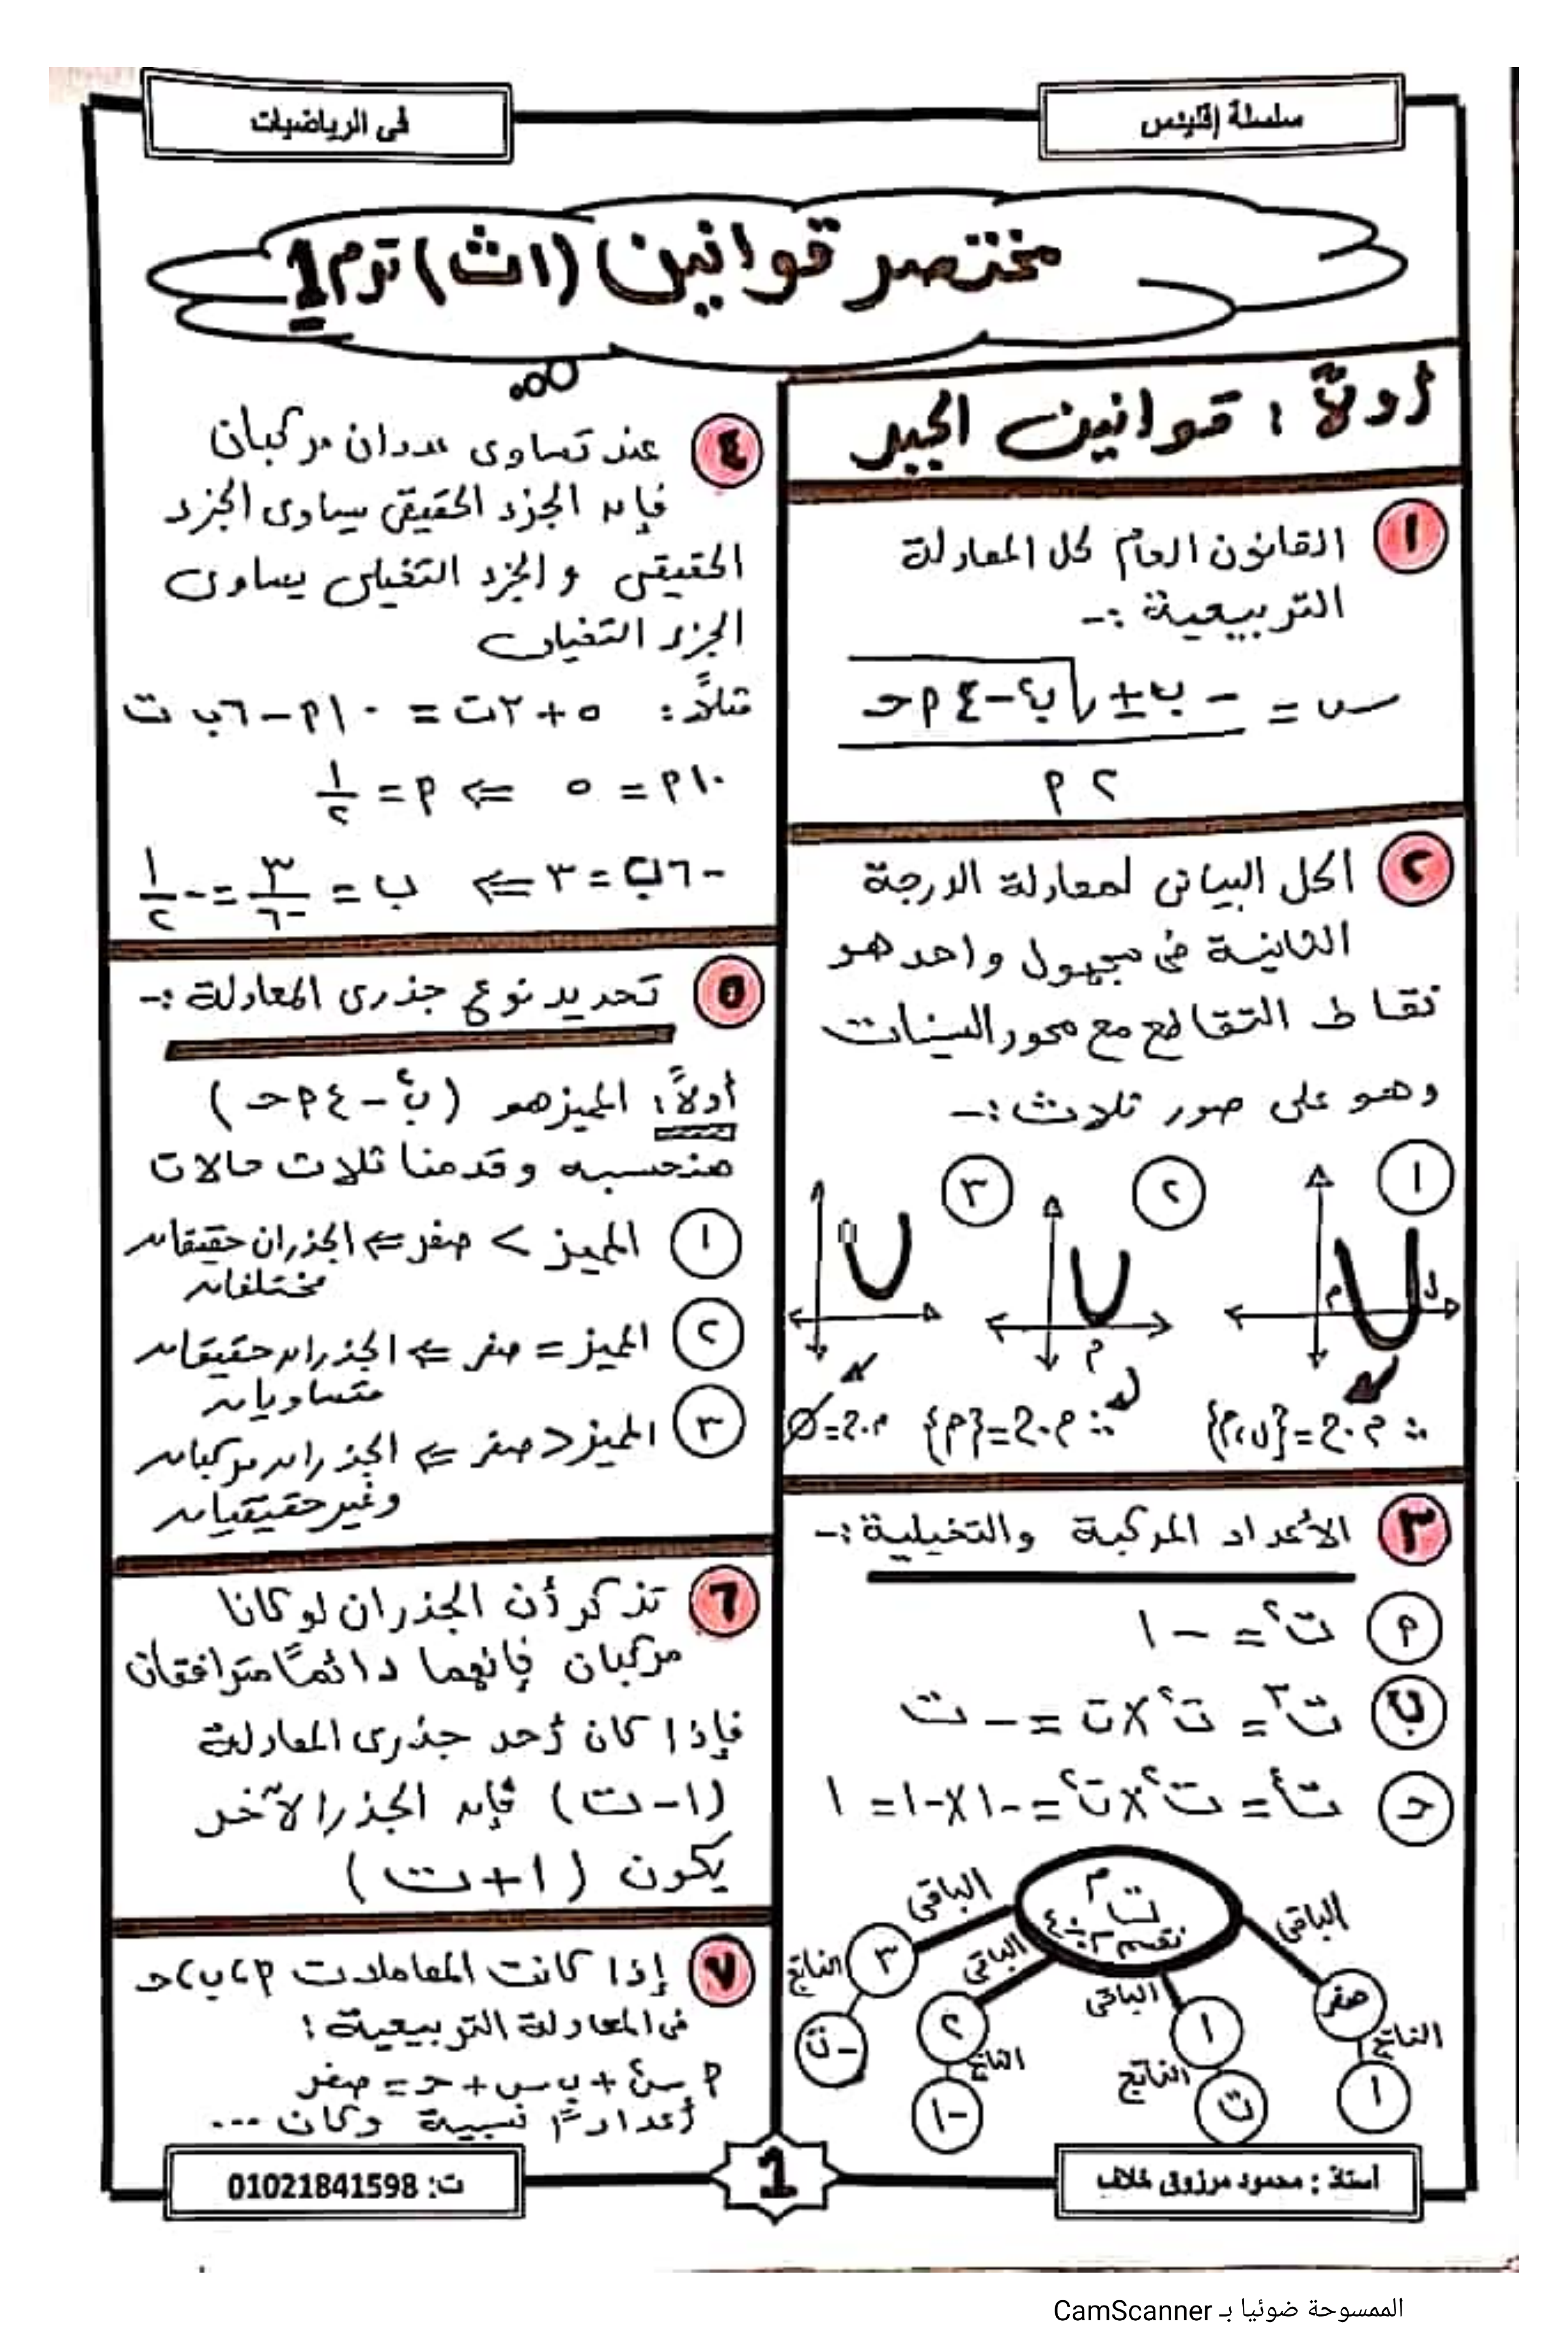 سلسلة إقليدس
فى الرياضيات
مختصر قوانين (١ث) ترم 1
أولاً : قوانين الجبر
١ القانون العام لحل المعادلة
التربيعية :-
س = (- ب ± √(ب٢ - ٤ م حـ))
٢ م
٢ الحل البيانى لمعادلة الدرجة
الثانية فى مجهول واحد هو
نقاط التقاطع مع محور السينات
وهو على صور ثلاث :-
١ ٢ ٣
م ل
م
∴ م.ح = {م، ل}
∴ م.ح = {م}
م.ح = ∅
٣ الأعداد المركبة والتخيلية :-
م ت٢ = - ١
ب ت٣ = ت٢ × ت = - ت
حـ ت٤ = ت٢ × ت٢ = -١ × -١ = ١
ت م
نقسم م ÷ ٤
الباقى صفر الناتج ١
الباقى ١ الناتج ت
الباقى ٢ الناتج -١
الباقى ٣ الناتج -ت
٤ عند تساوى عددان مركبان
فإن الجزء الحقيقى يساوى الجزء
الحقيقى والجزء التخيلى يساوى
الجزء التخيلى
مثلاً : ٥ + ٢ت = ١٠م - ٦ب ت
١٠م = ٥ ⇐ م = ١/٢
-٦ب = ٣ ⇐ ب = ٣/-٦ = -١/٢
٥ تحديد نوع جذرى المعادلة :-
أولاً : المميز هو (ب٢ - ٤ م حـ)
هنحسبه وقدمنا ثلاث حالات
١ المميز > صفر ⇐ الجذران حقيقان
مختلفان
٢ المميز = صفر ⇐ الجذران حقيقان
متساويان
٣ المميز < صفر ⇐ الجذران مركبان
وغير حقيقيان
٦ تذكر أن الجذران لو كانا
مركبان فإنهما دائماً مترافقان
فإذا كان أحد جذرى المعادلة
(١ - ت) فإن الجذر الآخر
يكون (١ + ت)
٧ إذا كانت المعاملات م، ب، حـ
فى المعادلة التربيعية :
م س٢ + ب س + حـ = صفر
أعداداً نسبية وكان ...
أستاذ : محمود مرزوق خلاف
1
ت: 01021841598
الممسوحة ضوئيا بـ CamScanner